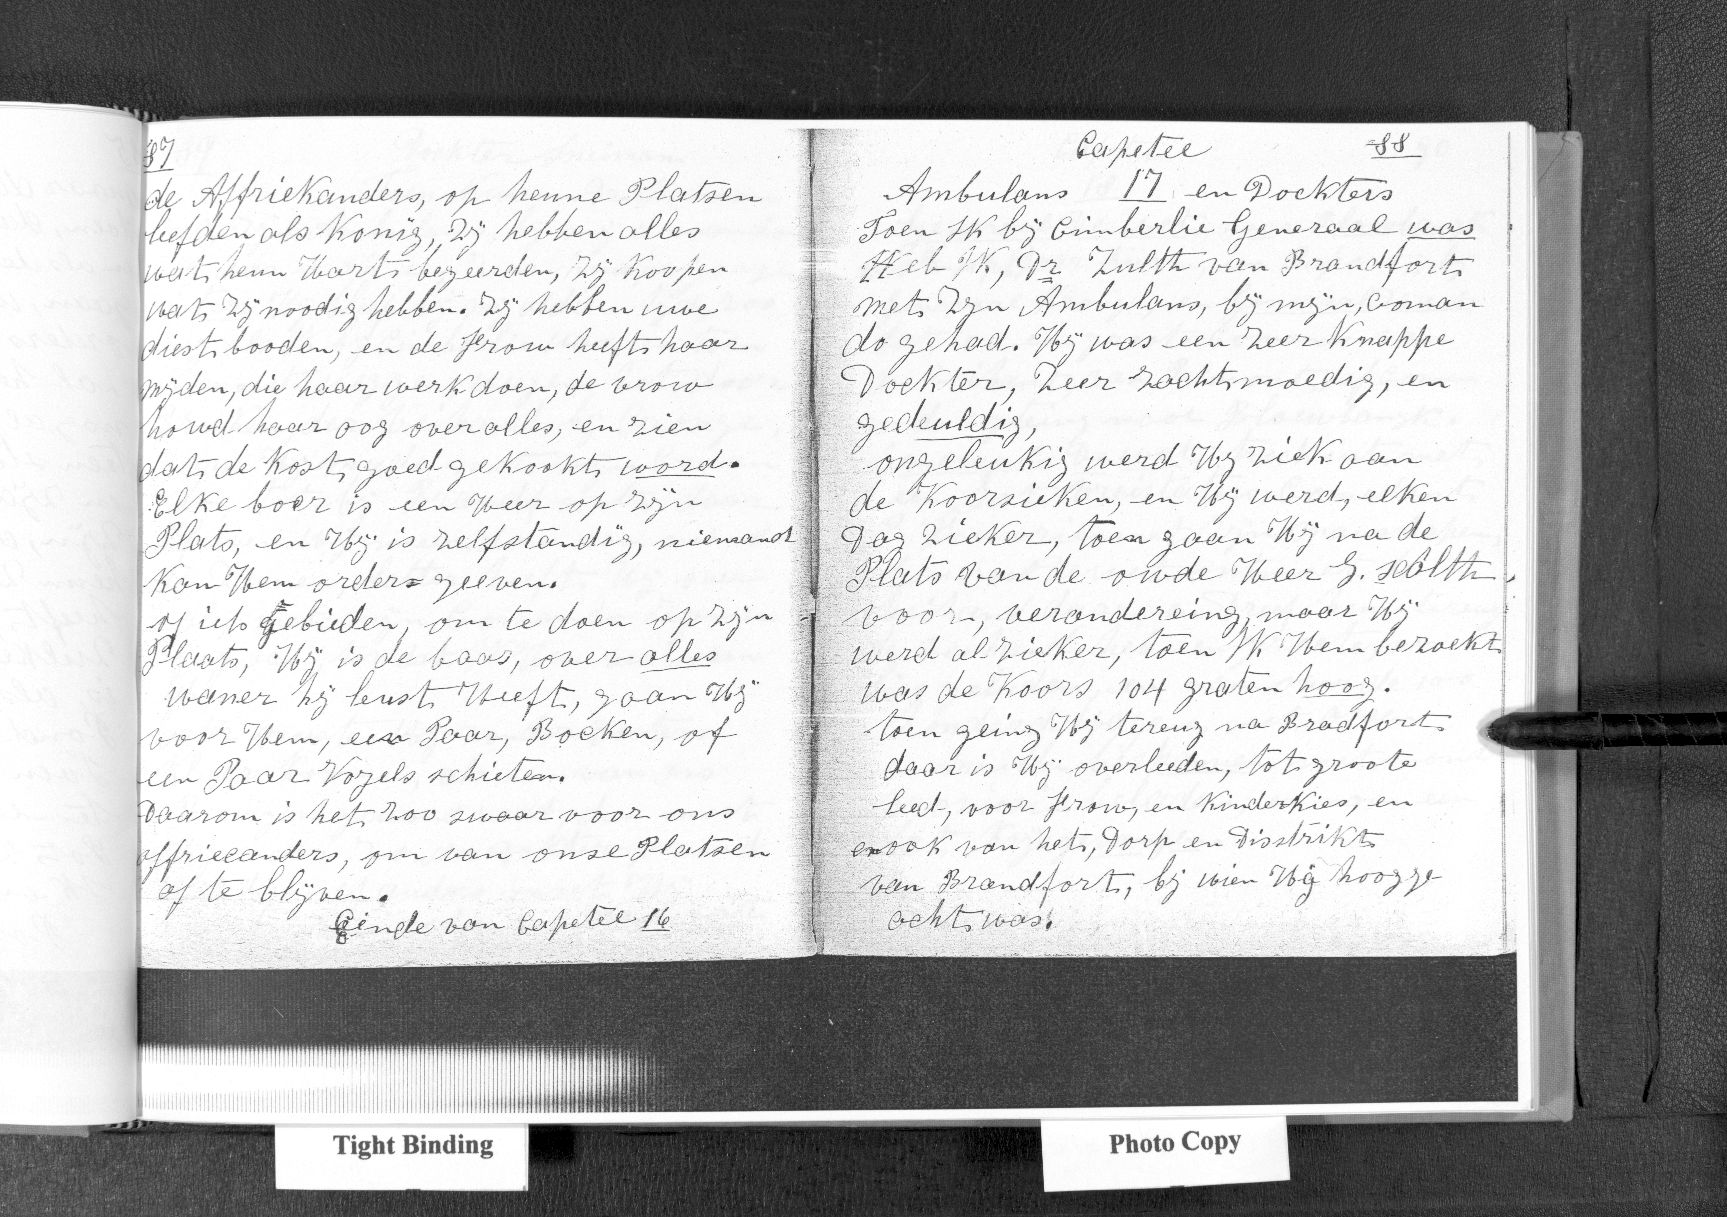 87
de Affriekanders, op henne Platsen
leefden als Konig, Zÿ hebben alles
wat henn Hart begeerden, Zÿ Koopen
wat Zÿ noodig hebben. Zÿ hebben uwe
diest booden, en de frow heeft haar
mÿden, die haar werk doen, de vrow
howd haar oog over alles, en zien
dat de Kost goed gekookt word.
Elke boer is een Heer op zÿn
Plats, en Hÿ is zelfstandig, niemandt
Kan Hem orders geeven.
of iets Gebieden, om te doen op zÿn
Plaats, Hÿ is de baas, over alles
waner hÿ leust Heeft, gaan Hÿ
voor Hem, een Paar, Bocken, of
een Paar Vogels schieten.
Daarom is het zoo swaar voor ons
affriecanders, om van onse Platsen
af te blÿven.
Einde van Capetel 16
Capetel 88
Ambulans 17 en Dockters
Toen Ik bÿ Cimberlie Generaal was
Heb Ik, Dr Zulth van Brandfort
met Zÿn Ambulans, bÿ mÿn, Coman
do gehad. Hÿ was een zeer Knappe
Dockter, Zeer zachtmoedig, en
gedeuldig,
ongeleukig werd Hÿ ziek aan
de Koorsieken, en Hÿ werd, elken
Dag zieker, toen gaan Hÿ na de
Plats van de owde Heer G.
voor, verandereing, maar Hÿ
werd al zieker, toen Ik Hem bezoekt
was de Koors 104 graten hoog.
toen geing Hÿ tereug na Bradfort
daar is Hÿ overleeden, tot groote
leed, voor frow, en Kinderkies, en
enook van het, Dorp en Disstrikt
van Brandfort, bÿ wien Hÿ hoog ge
acht was.
Tight Binding
Photo Copy